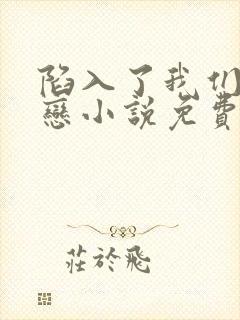 陷入了我们
戀小說免費
莊於飛